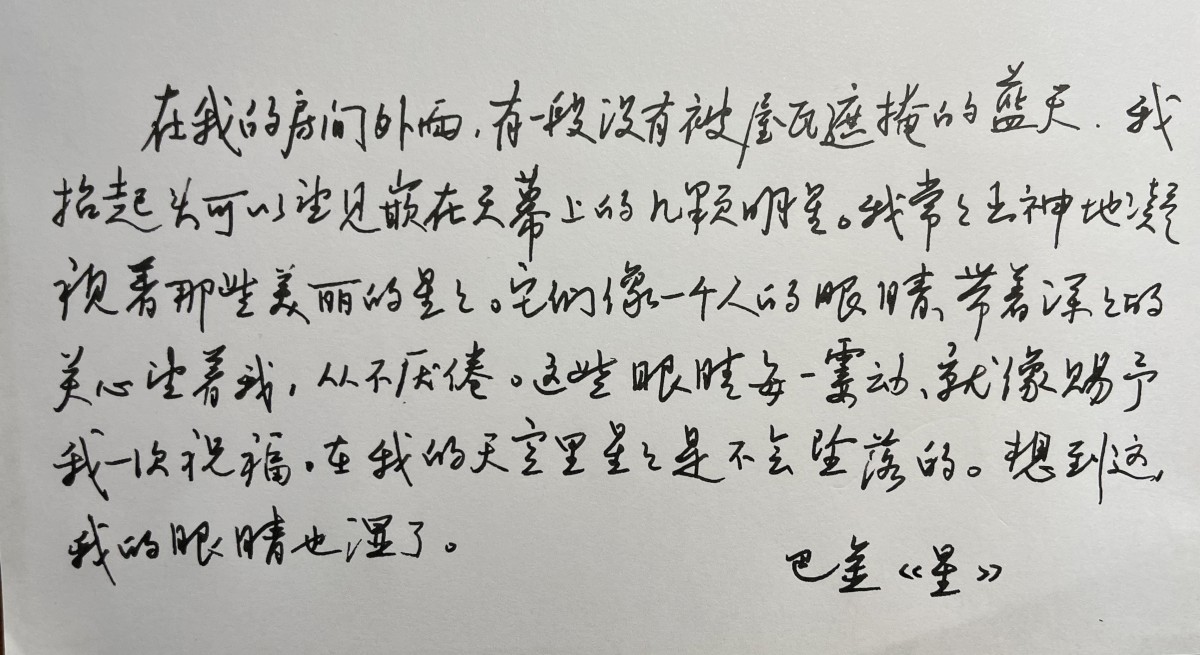 在我的房间外面,有一段没有被屋瓦遮掩的蓝天.我
抬起头可以望见嵌在天幕上的几颗明星。我常々出神地凝
视着那些美丽的星々。它们像一个人的眼睛、带着深々的
关心望着我,从不厌倦。这些眼睛每一霎动、就像赐予
我一次祝福。在我的天空里星々是不会坠落的。想到这,
我的眼睛也湿了。
巴金《星》